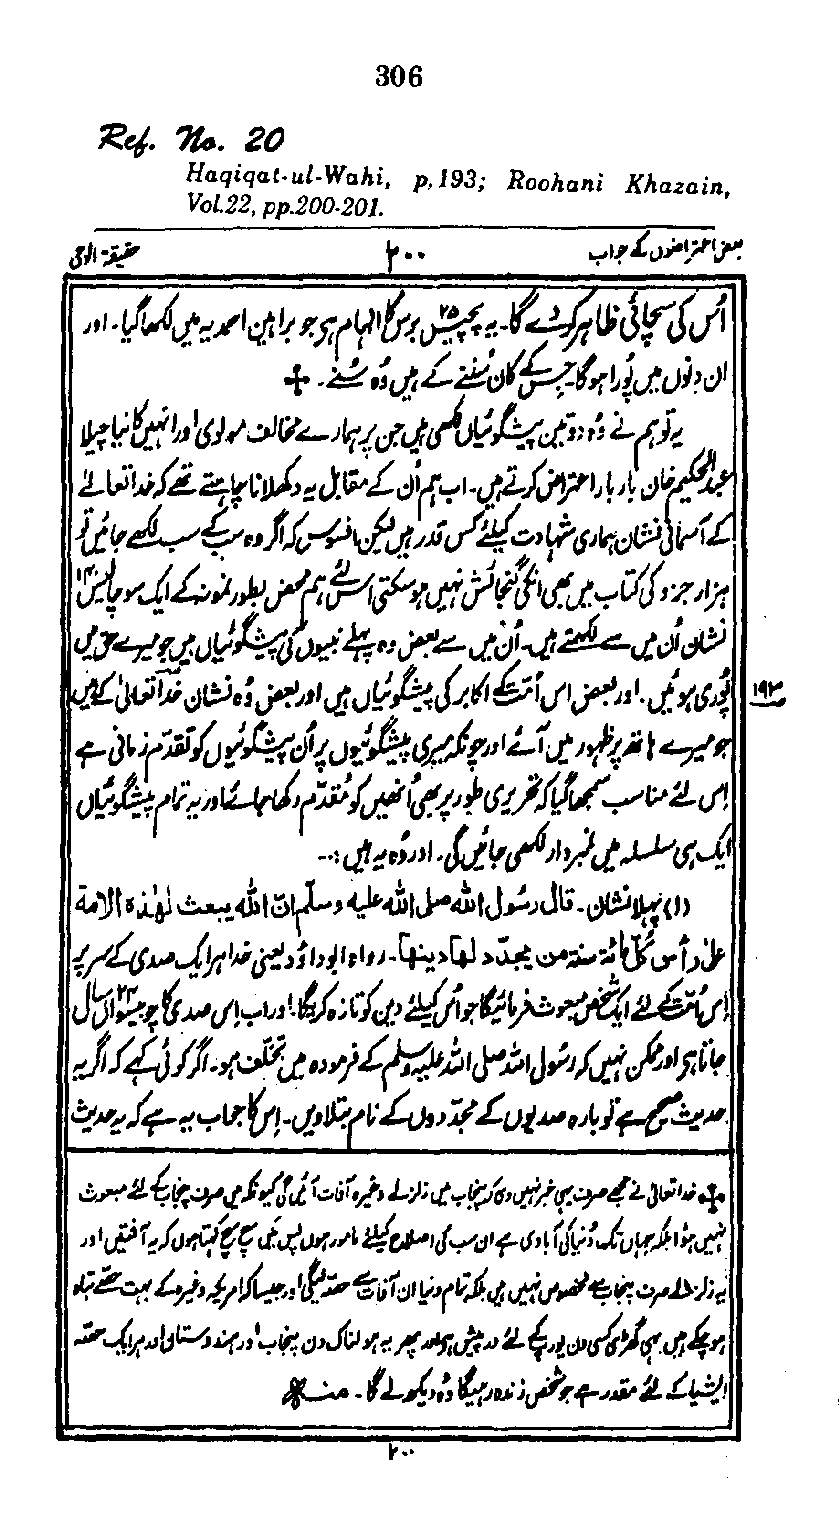 306
Ref. No. 20
Haqiqat-ul-Wahi, p,193; Roohani Khazain,
Vol.22, pp.200-201.
بعض اعتراضوں کے جواب
۲۰۰
حقیقۃ الوحی
اُس کی سچائی ظاہر کر دے گا۔ یہ پچیس۲۵ برس کا الہام ہی جو براہین احمدیہ میں لکھا گیا۔ اور
ان دنوں میں پُورا ہوگا۔ جس کے کان سُننے کے ہیں وُہ سُنے۔
یہ تو ہم نے وُہ دو تین پیشگوئیاں لکھی ہیں جن پر ہمارے مخالف مولوی اور انہیں کا نیا چیلا
عبدالحکیم خان بار بار اعتراض کرتے ہیں۔ اب ہم اُن کے مقابل یہ دکھلانا چاہتے تھے کہ خدا تعالےٰ
کے آسمانی نشان ہماری شہادت کیلئے کس قدر ہیں لیکن افسوس کہ اگر وہ سب کے سب لکھے جائیں تو
ہزار جزو کی کتاب میں بھی انکی گنجائش نہیں ہو سکتی اس لئے ہم محض بطور نمونہ کے ایک سو چالیس۱۴۰
نشان اُن میں سے لکھتے ہیں۔ اُن میں سے بعض وہ پہلے نبیوں کی پیشگوئیاں ہیں جو میرے حق میں
پُوری ہوئیں۔ اور بعض اس اُمّت کے اکابر کی پیشگوئیاں ہیں اور بعض وُہ نشان خدا تعالیٰ کے ہیں
۱۹۳
جو میرے ہاتھ پر ظہور میں آئے اور چونکہ میری پیشگوئیوں پر اُن پیشگوئیوں کو تقدّم زمانی ہے
اِس لئے مناسب سمجھا گیا کہ تحریری طور پر بھی اُنھیں کو مُقدّم رکھا جائے اور یہ تمام پیشگوئیاں
ایک ہی سلسلہ میں نمبر دار لکھی جائیں گی۔ اور وُہ یہ ہیں :۔
(۱) پہلا نشان۔ قال رسُول اللہ صلی اللہ علیہ وسلّم انّ اللہ یبعث لھٰذہ الامۃ
علیٰ رأس کُلّ مائۃ سنۃ من یجدّد لھا دینھا۔ رواہ ابوداؤد یعنی خدا ہر ایک صدی کے سر پر
اِس اُمّت کے لئے ایک شخص مبعوث فرمائیگا جو اُس کیلئے دین کو تازہ کریگا۔ اور اب اِس صدی کا چوبیسواں۲۴ سال
جاتا ہی اور ممکن نہیں کہ رسُول اللہ صلی اللہ علیہ وسلم کے فرمودہ میں تخلّف ہو۔ اگر کوئی کہے کہ اگر یہ
حدیث صحیح ہے تو بارہ صدیوں کے مجدّدوں کے نام بتلاویں۔ اِس کا جواب یہ ہے کہ یہ حدیث
خدا تعالیٰ نے مجھے صرف یہی خبر نہیں دی کہ پنجاب میں زلزلے وغیرہ آفات آئیں گی کیونکہ میں صرف پنجاب کے لئے مبعوث
نہیں ہوا بلکہ جہاں تک دُنیا کی آبادی ہے ان سب کی اصلاح کیلئے مامور ہوں پس میں سچ سچ کہتا ہوں کہ یہ آفتیں اور
یہ زلزلے صرف پنجاب سے مخصوص نہیں ہیں بلکہ تمام دنیا ان آفات سے حصہ لیگی اور جیسا کہ امریکہ وغیرہ کے بہت حصّے تباہ
ہو چکے ہیں یہی گھڑی کسی دن یورپ کے لئے درپیش ہی اور پھر یہ ہولناک دن پنجاب اور ہندوستان اور ہر ایک حصّہ
ایشیا کے لئے مقدر ہے جو شخص زندہ رہیگا وُہ دیکھ لے گا۔ منہ
۲۰۰